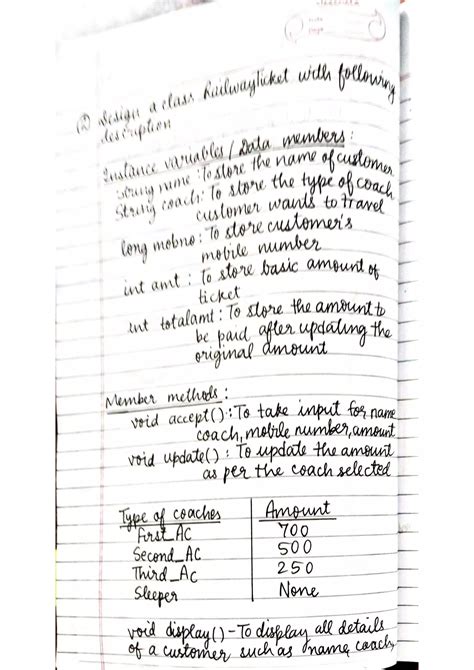 (2) Design a class RailwayTicket with following
description
Instance variables/Data members:
String name: To store the name of customer
String coach: To store the type of coach
customer wants to travel
long mobno: To store customer's
mobile number
int amt : To store basic amount of
ticket
int totalamt: To store the amount to
be paid after updating the
original amount
Member methods:
void accept(): To take input for name
coach, mobile number, amount
void update() : To update the amount
as per the coach selected
Type of coaches Amount
First_AC 700
Second_AC 500
Third_AC 250
Sleeper None
void display() - To display all details
of a customer such as name coach,